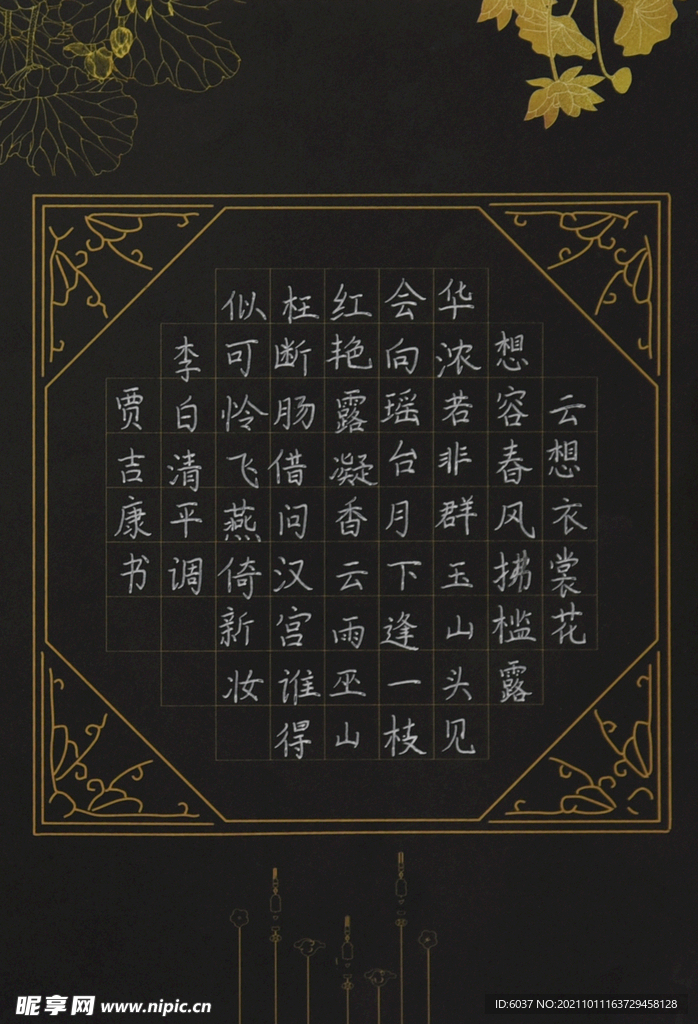 云想衣裳花
想容春风拂槛露
华浓若非群玉山头见
会向瑶台月下逢一枝
红艳露凝香云雨巫山
枉断肠借问汉宫谁得
似可怜飞燕倚新妆
李白清平调
贾吉康书
昵享网 www.nipic.cn
ID:6037 NO:20211011163729458128